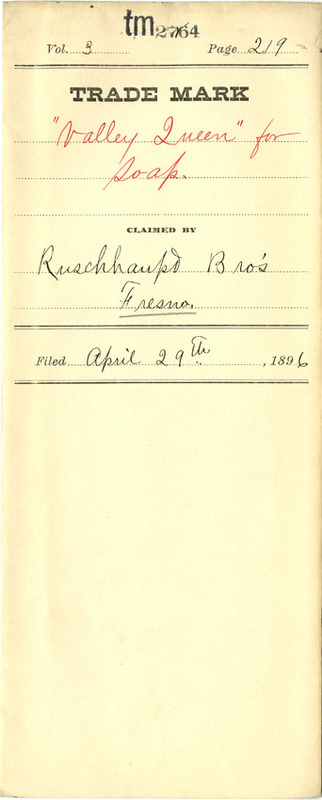 tm 2764
Vol. 3 Page 219
TRADE MARK
"Valley Queen" for
Soap.
CLAIMED BY
Ruschhaupt Bro's
Fresno.
Filed April 29th, 1896